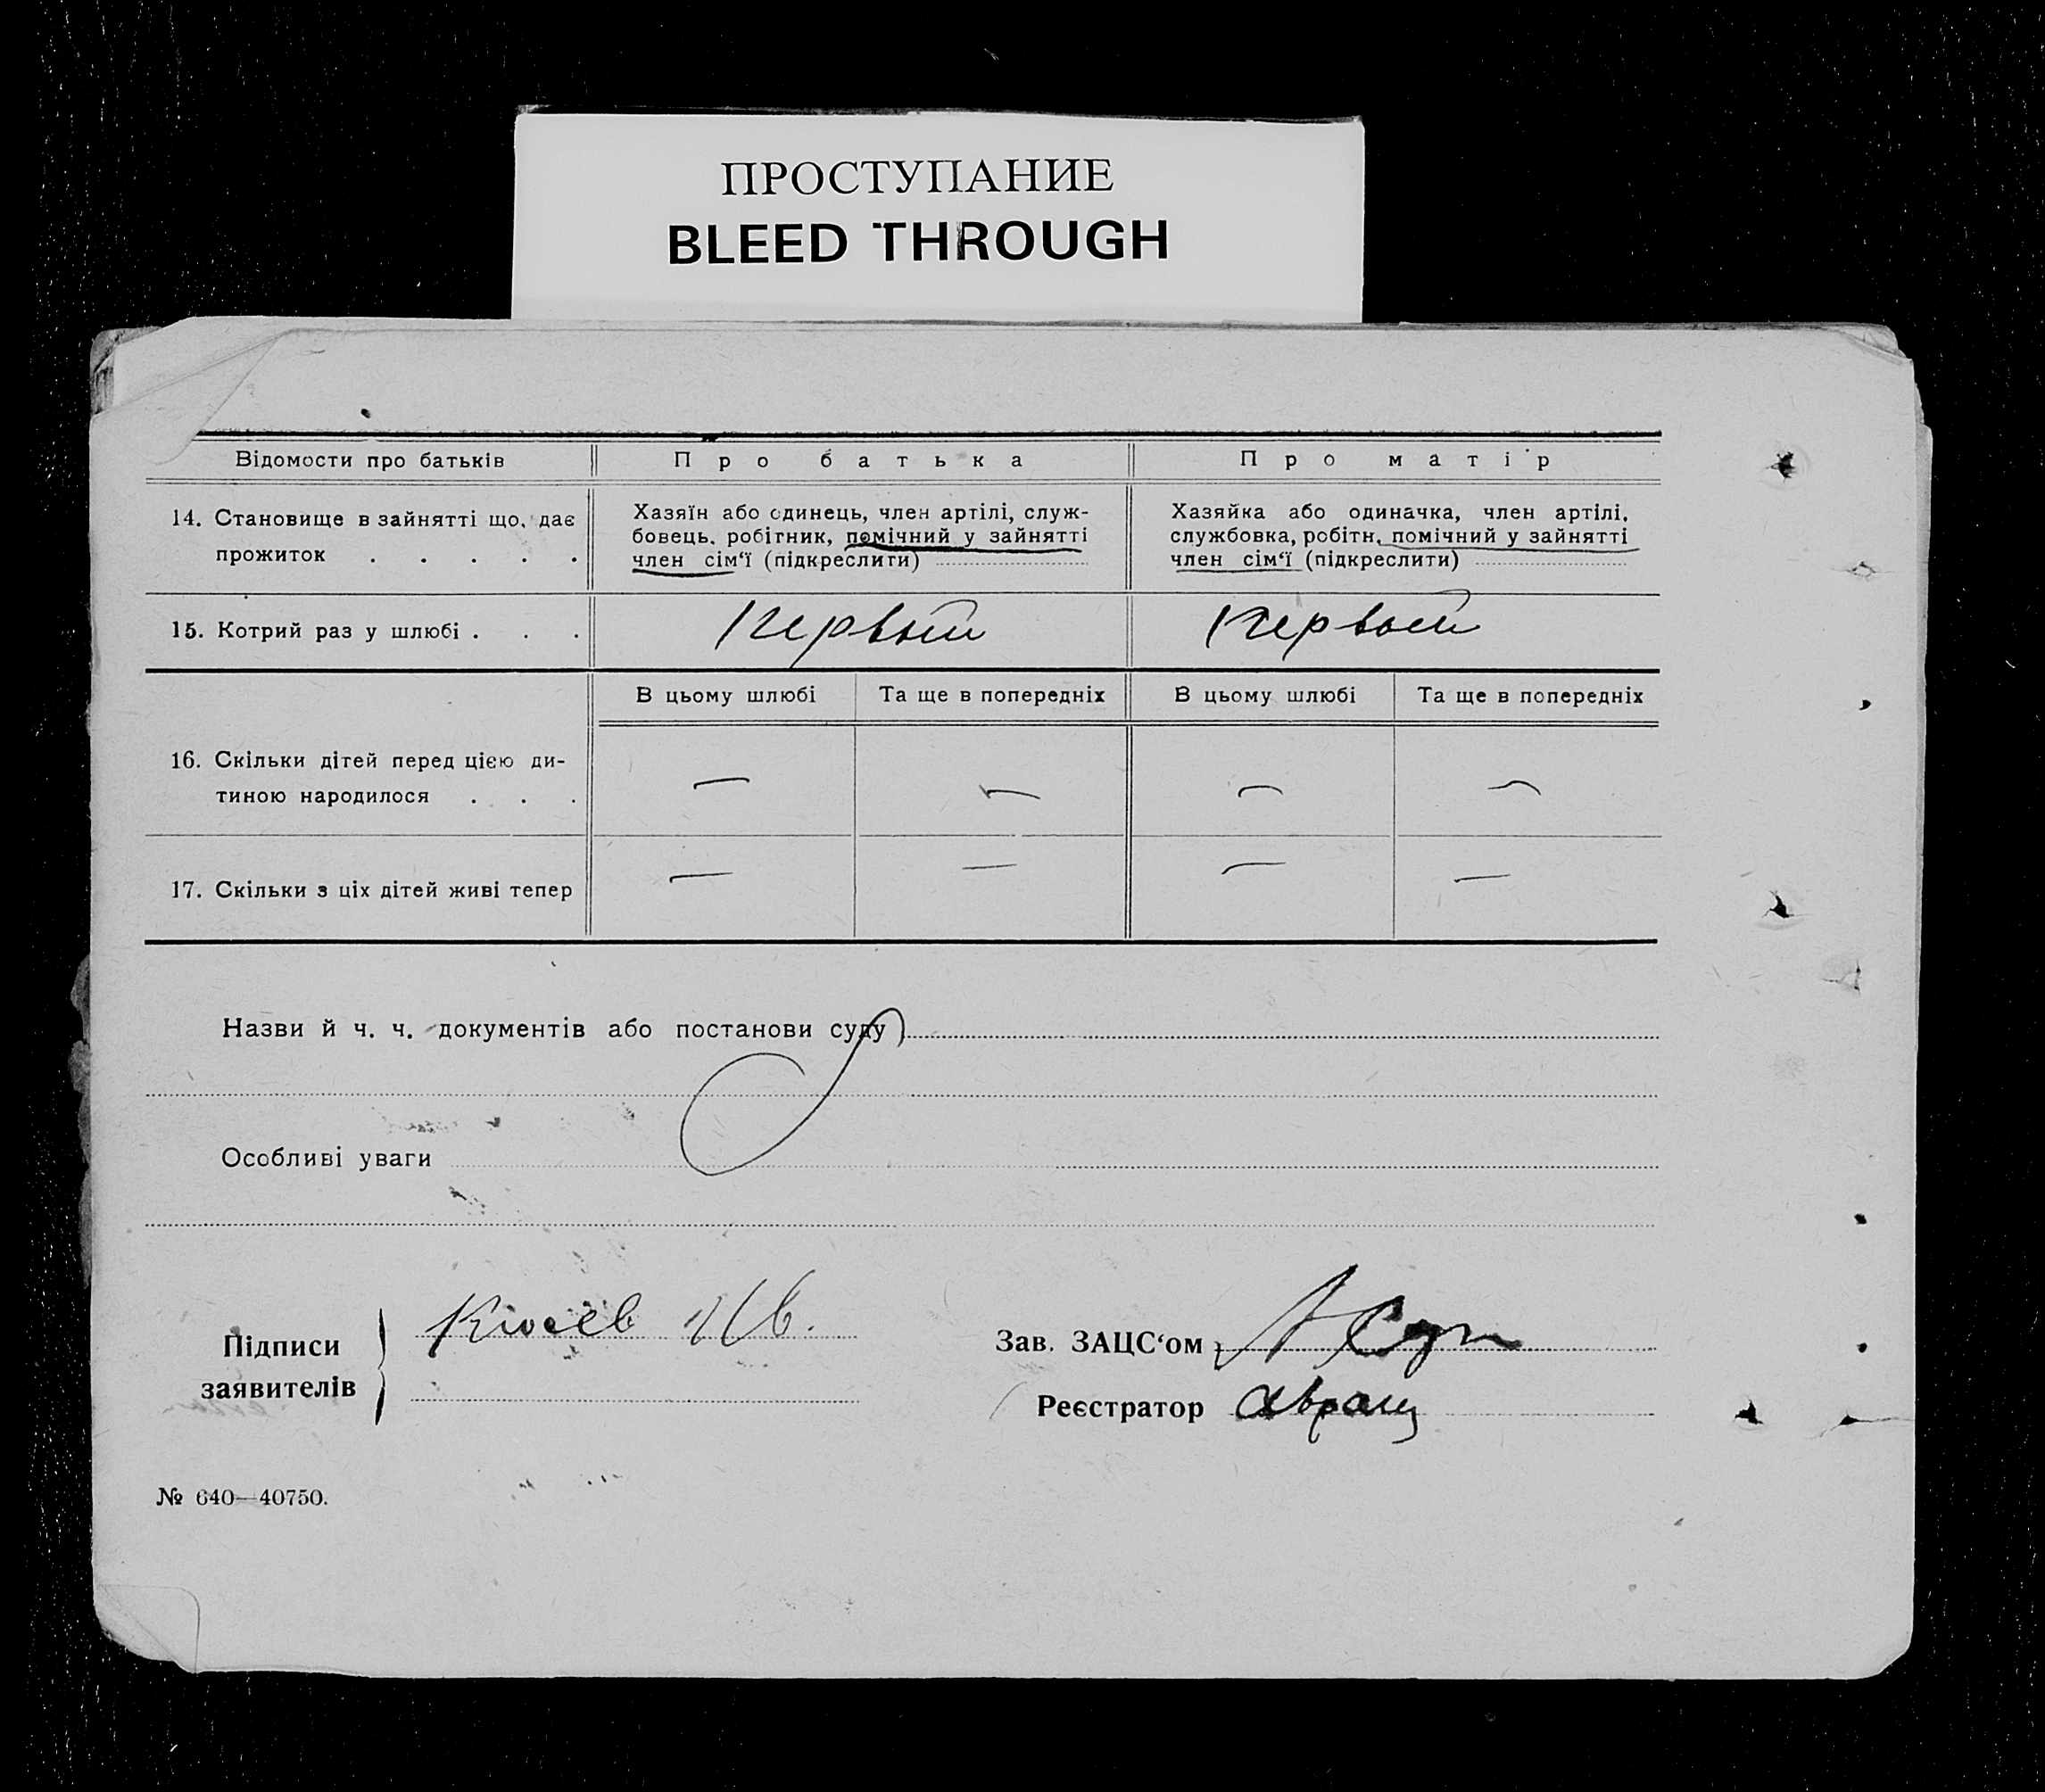 ПРОСТУПАНИЕ
BLEED THROUGH
Відомости про батьків
Про батька
Про матір
14. Становище в зайнятті що, дає
прожиток . . . . .
Хазяїн або одинець, член артілі, служ-
бовець, робітник, помічний у зайнятті
член сім‘ї (підкреслити)
Хазяйка або одиначка, член артілі,
службовка, робітн, помічний у зайнятті
член сім‘ї (підкреслити)
15. Котрий раз у шлюбі . . .
Первый
Первый
В цьому шлюбі
Та ще в попередніх
В цьому шлюбі
Та ще в попередніх
16. Скільки дітей перед цією ди-
тиною народилося . . .
—
—
—
—
17. Скільки з ціх дітей живі тепер
—
—
—
—
Назви й ч. ч. документів або постанови суду
Особливі уваги
Підписи
заявителів
Кюсев
Зав. ЗАЦС‘ом
Реєстратор
№ 640—40750.